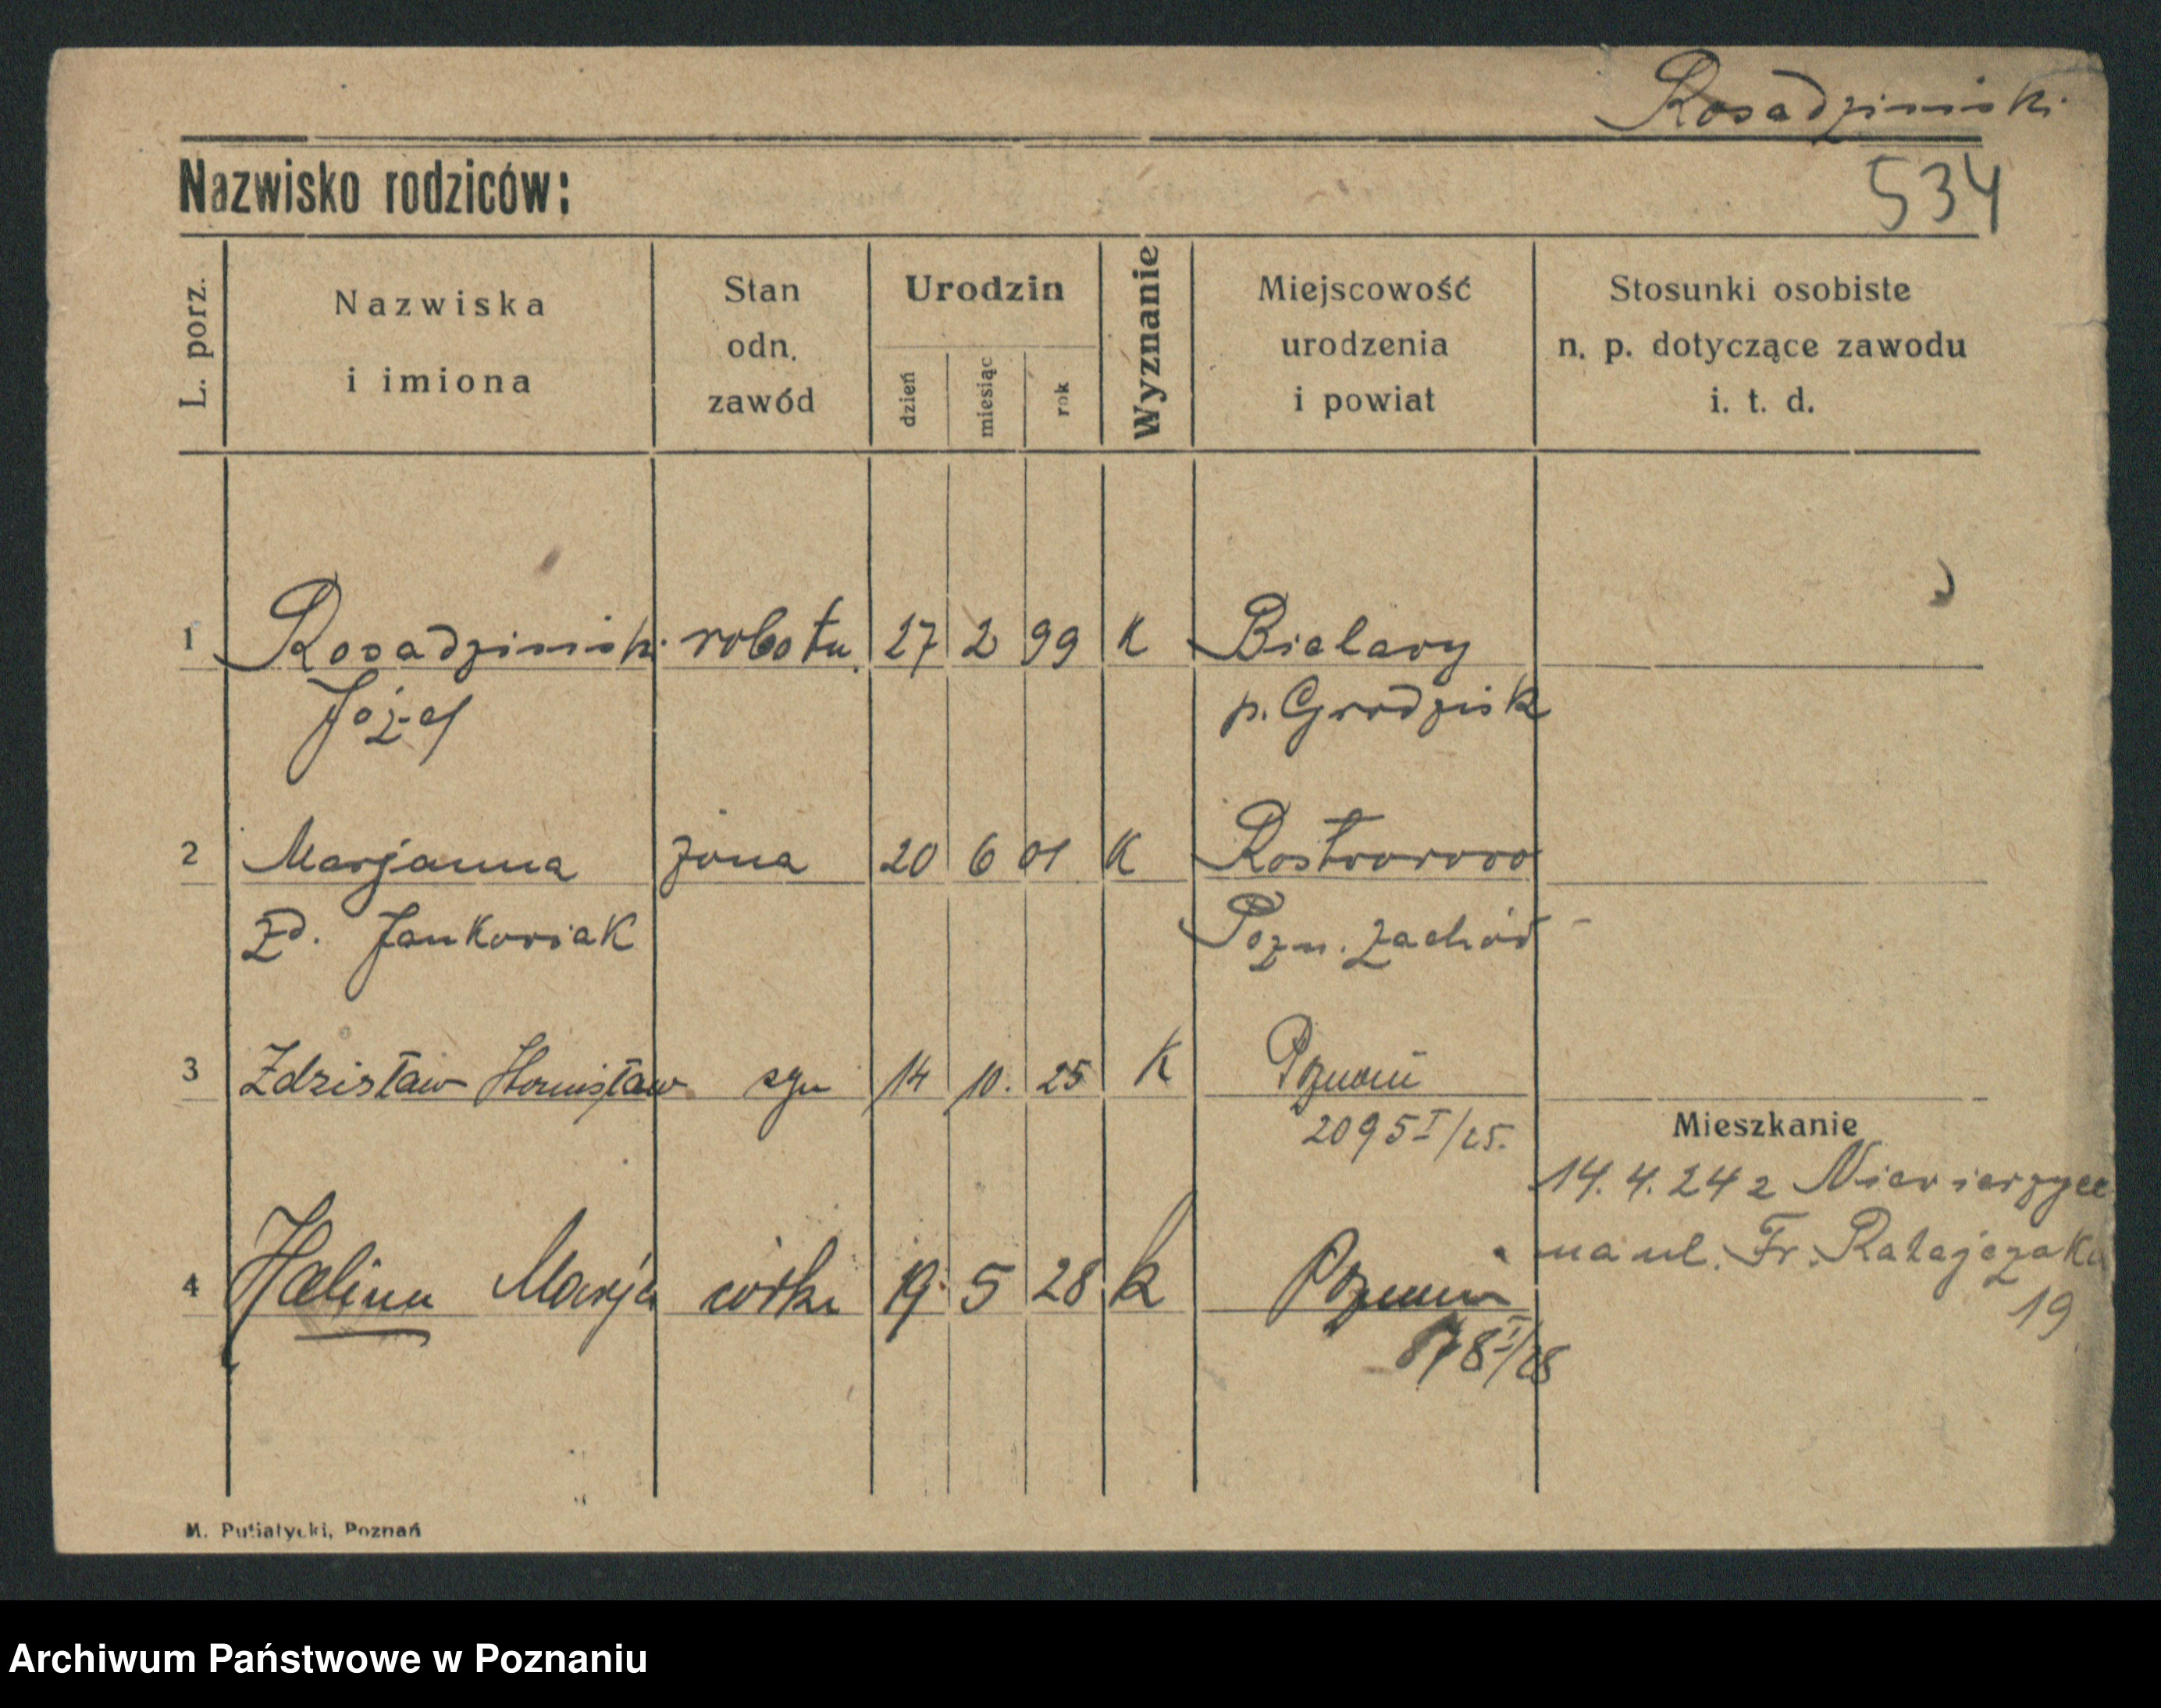 Rosadziński
Nazwisko rodziców:
534
L. porz.
Nazwiska
i imiona
Stan
odn.
zawód
Urodzin
dzień
miesiąc
rok
Wyznanie
Miejscowość
urodzenia
i powiat
Stosunki osobiste
n. p. dotyczące zawodu
i. t. d.
1 Rosadziński robotn. 27 2 99 K Bielawy
Józef p. Grodzisk
2 Marjanna żona 20 6 01 K Rostworowo
zd. Jankowiak Pozn. Zachód -
3 Zdzisław Stanisław syn 14 10. 25 K Poznań
2095 I/25.
Mieszkanie
14. 4. 24 z Niewierzyce
na ul. Fr. Ratajczaka
19
4 Halina Marja córka 19. 5 28 k Poznań
878 I/28
M. Putiatycki, Poznań
Archiwum Państwowe w Poznaniu